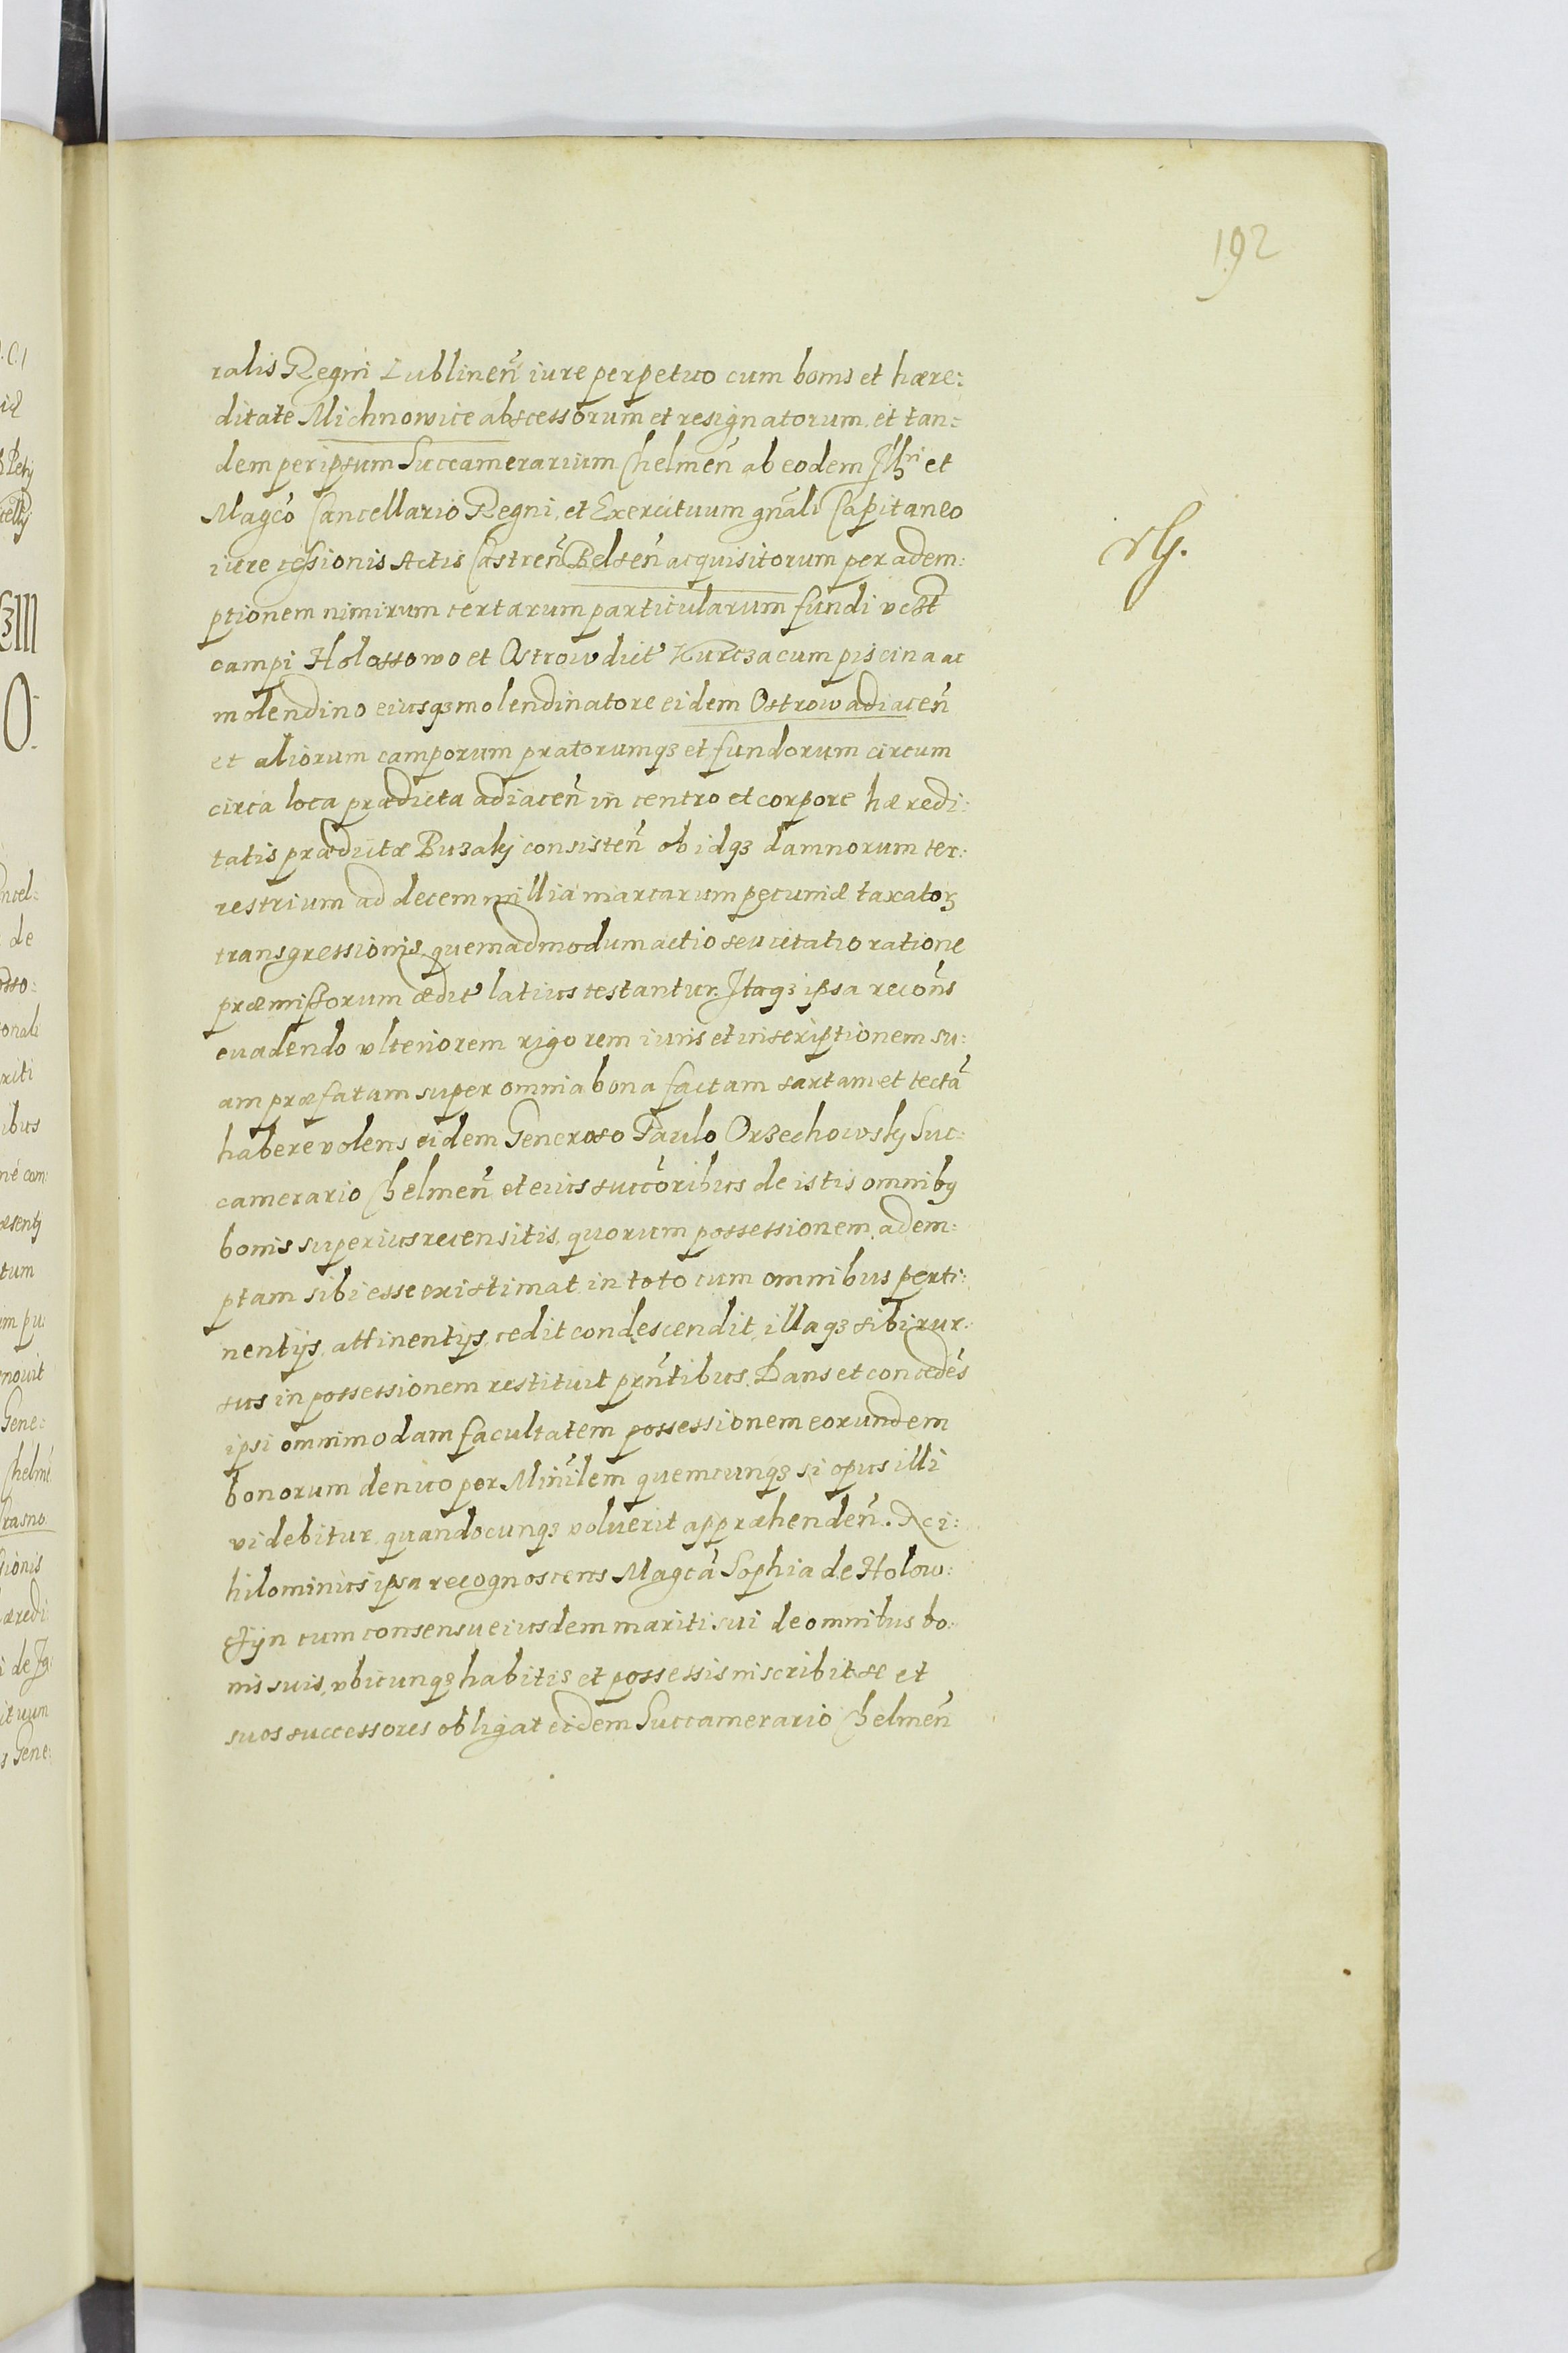 192
ralis Regni Lublineñ iure perpetuo cum bonis et hære:
ditate Michnowice abscessorum et resignatorum, et tan:
dem per ipsum Succamerarium Chelmeñ ab eodem Illri et
Magco Cancellario Regni, et Exercituum gnãli Capitaneo
iure cessionis Actis Castreñ Belseñ acquisitorum per adem:
ptionem nimirum certarum particularum fundi
campi Holossowo et Ostrow dict Kurcza cum piscina ac
molendino eiusq3 molendinatore eidem Ostrow adiaceñ
et aliorum camporum pratorumq3 et fundorum circum
circa loca prædicta adiaceñ in centro et corpore hæredi:
tatis prædictæ Buzaky consisteñ ob idq3 damnorum ter:
restrium ad decem millia marcarum pecuniæ taxator3
transgressionis, quemadmodum actio seu citatio ratione
præmissorum ædit latius testantur. Itaq3 ipsa recoñs
euadendo vlteriorem rigorem iuris et inscriptionem su:
am præfatam super omnia bona factam sartam et tectã
habere volens eidem Generoso Paulo Orzechowsky Suc:
camerario Chelmeñ et eius succõribus de istis omnibq
bonis superius recensitis, quorum possessionem adem:
ptam sibi esse existimat in toto cum omnibus perti:
nentijs, attinentijs, cedit condescendit, illaq3 sibi rur:
sus in possessionem restituit prñtibus. Dans et concedẽs
ipsi omnimodam facultatem possessionem eorundem
bonorum denuo per Minĩlem quemcunq3 si opus illi
videbitur, quandocunq3 voluerit appræhendeñ. Nci:
hilominus ipsa recognoscens Magcã Sophia de Holow:
cum consensu eiusdem mariti sui de omnibus bo:
nis suis, vbicunq3 habitis et possessis inscribit se et
suos successores obligat eidem Succamerario Chelmeñ